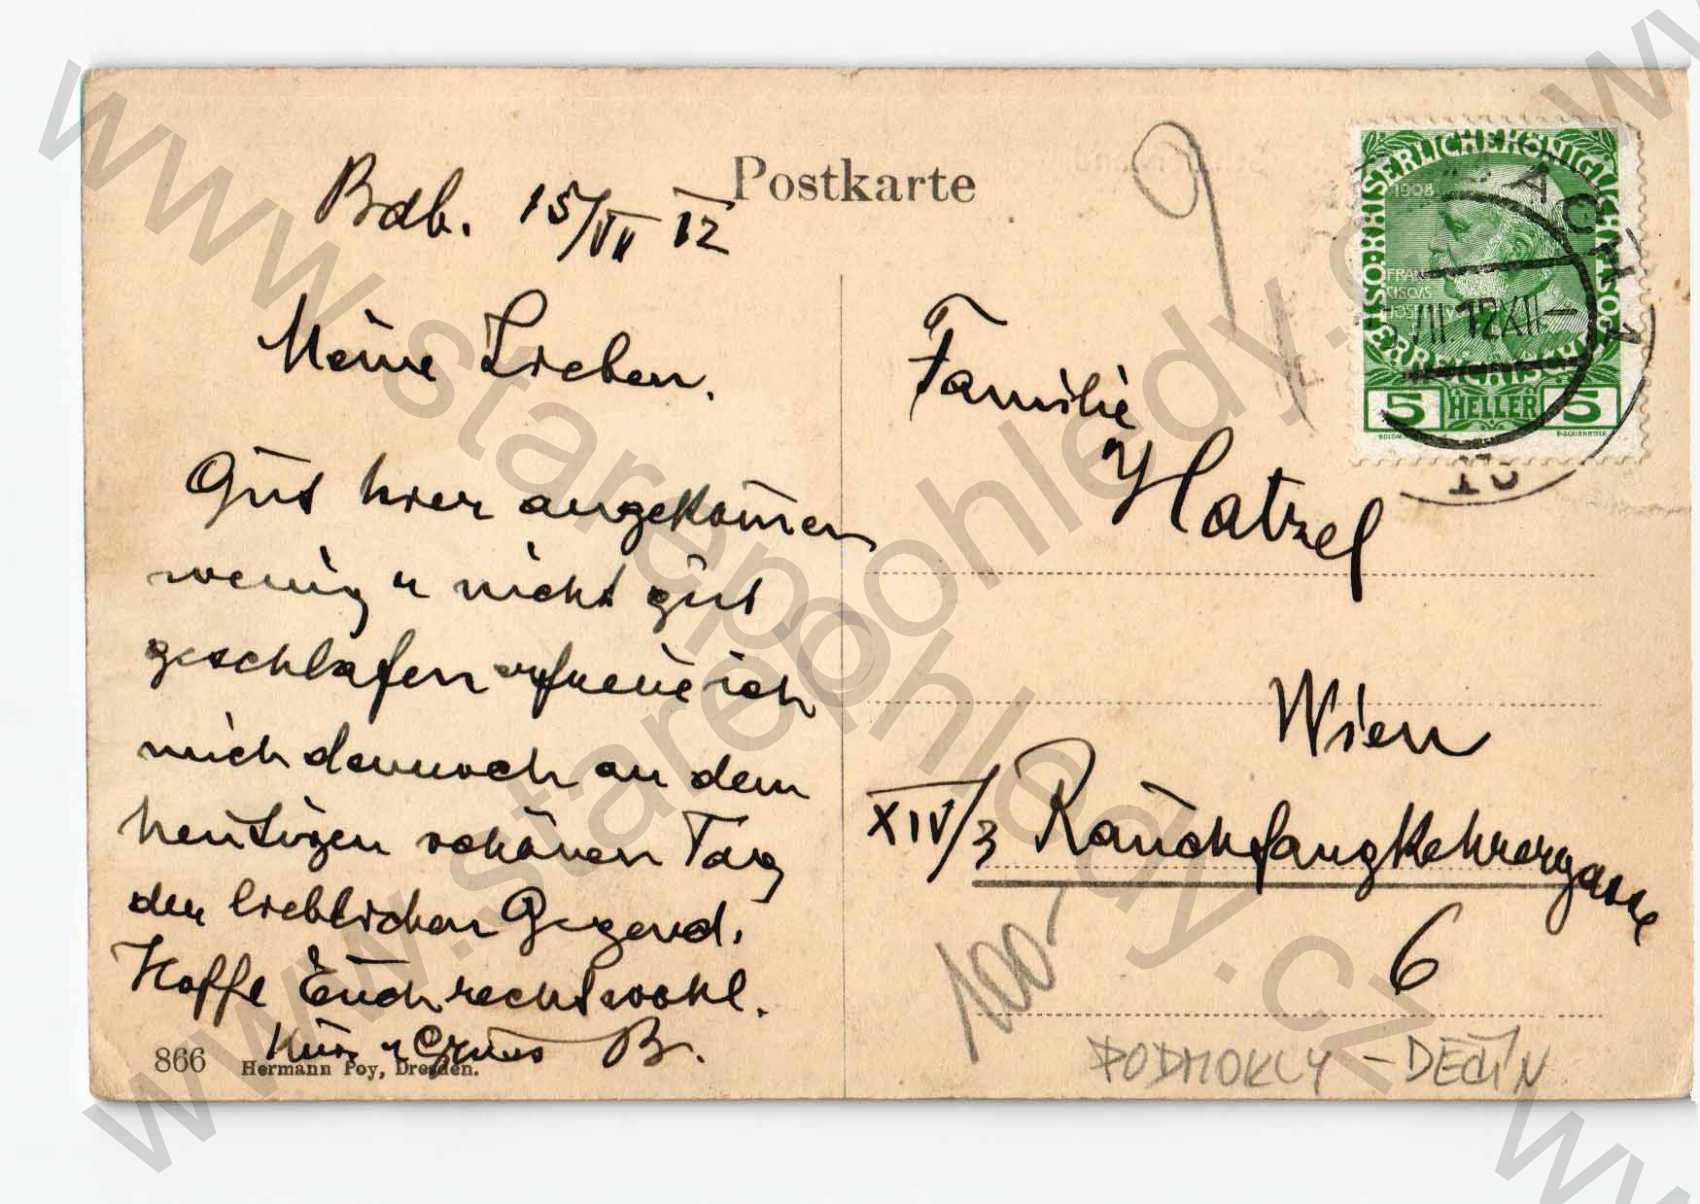 Postkarte
Bdb. 15/VII 12
Meine Lieben.
Gut hier angekom̅en
wenig u nicht gut
geschlafen erfreue ich
mich dennoch an dem
heutigen schönen Tag
der lieblichen Gegend.
Hoffe Euch recht wohl.
Kuss u Gruss B.
866 Hermann Poy, Dresden.
9
KAISERLICHE KÖNIGLICHE
1908
FRAN
CISCVS
5 HELLER 5
VII.12 XII-
Familie
Hatzel
Wien
XIV/3 Rauchfangkehrergasse
6
100-
PODMOKLY - DĚČÍN
www.starepohledy.cz
www.starepohledy.cz